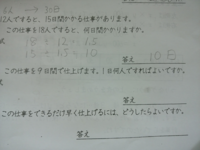 12人ですると、15日間かかる仕事があります。
この仕事を18人ですると、何日間かかりますか。
式
18÷12=1.5
15÷1.5=10
答え 10日
この仕事を9日間で仕上げます。1日何人ですればよいですか。
答え
この仕事をできるだけ早く仕上げるには、どうしたらよいですか。
答え